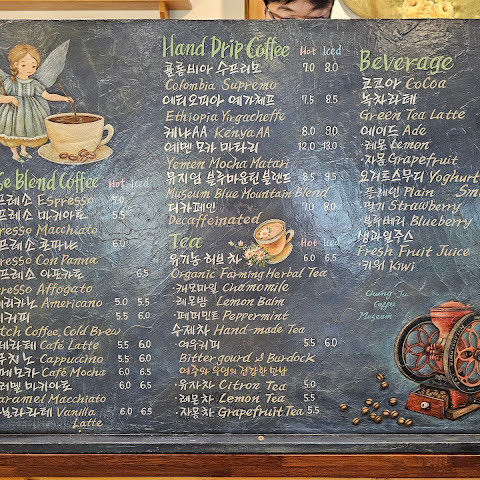 se Blend Coffee Hot Iced
프레소 Espresso 5.0
프레소 마키아또
presso Macchiato
프레소 콘파냐 6.0
presso Con Panna
프레소 아포카토 6.5
presso Affogato
리카노 Americano 5.0 5.5
커피 5.5 6.0
tch Coffee, Cold Brew
페라떼 Café Latte 5.5 6.0
푸치노 Cappuccino 5.5 6.0
페모카 Café Mocha 6.0 6.5
라멜 마키아또 6.0 6.5
aramel Macchiato
닐라라떼 Vanilla 6.0 6.5
Latte
Hand Drip Coffee Hot Iced
콜롬비아 수프리모 7.0 8.0
Colombia Supremo
에티오피아 예가체프 7.5 8.5
Ethiopia Yirgacheffe
케냐AA Kenya AA 8.0 9.0
예멘 모카 마타리 12.0 13.0
Yemen Mocha Matari
뮤지엄 블루마운틴 블렌드 8.5 9.5
Museum Blue Mountain Blend
디카페인 7.0 8.0
Decaffeinated
Tea Hot Iced
유기농 허브차 6.0 6.5
Organic Farming Herbal Tea
·캐모마일 Chamomile
·레몬밤 Lemon Balm
·페퍼민트 Peppermint
수제차 Hand-made Tea
·여우커피 5.5 6.0
Bittergourd & Burdock
여주와 우엉의 건강한 만남
·유자차 Citron Tea 5.0
·레몬차 Lemon Tea 5.5
·자몽차 Grapefruit Tea 5.5
Beverage
코코아 CoCoa
녹차라떼
Green Tea Latte
에이드 Ade
·레몬 Lemon
·자몽 Grapefruit
요거트스무디 Yoghurt
·플레인 Plain Sm
·딸기 Strawberry
·블루베리 Blueberry
생과일주스
Fresh Fruit Juice
·키위 Kiwi
Chung-Ju
Coffee
Museum